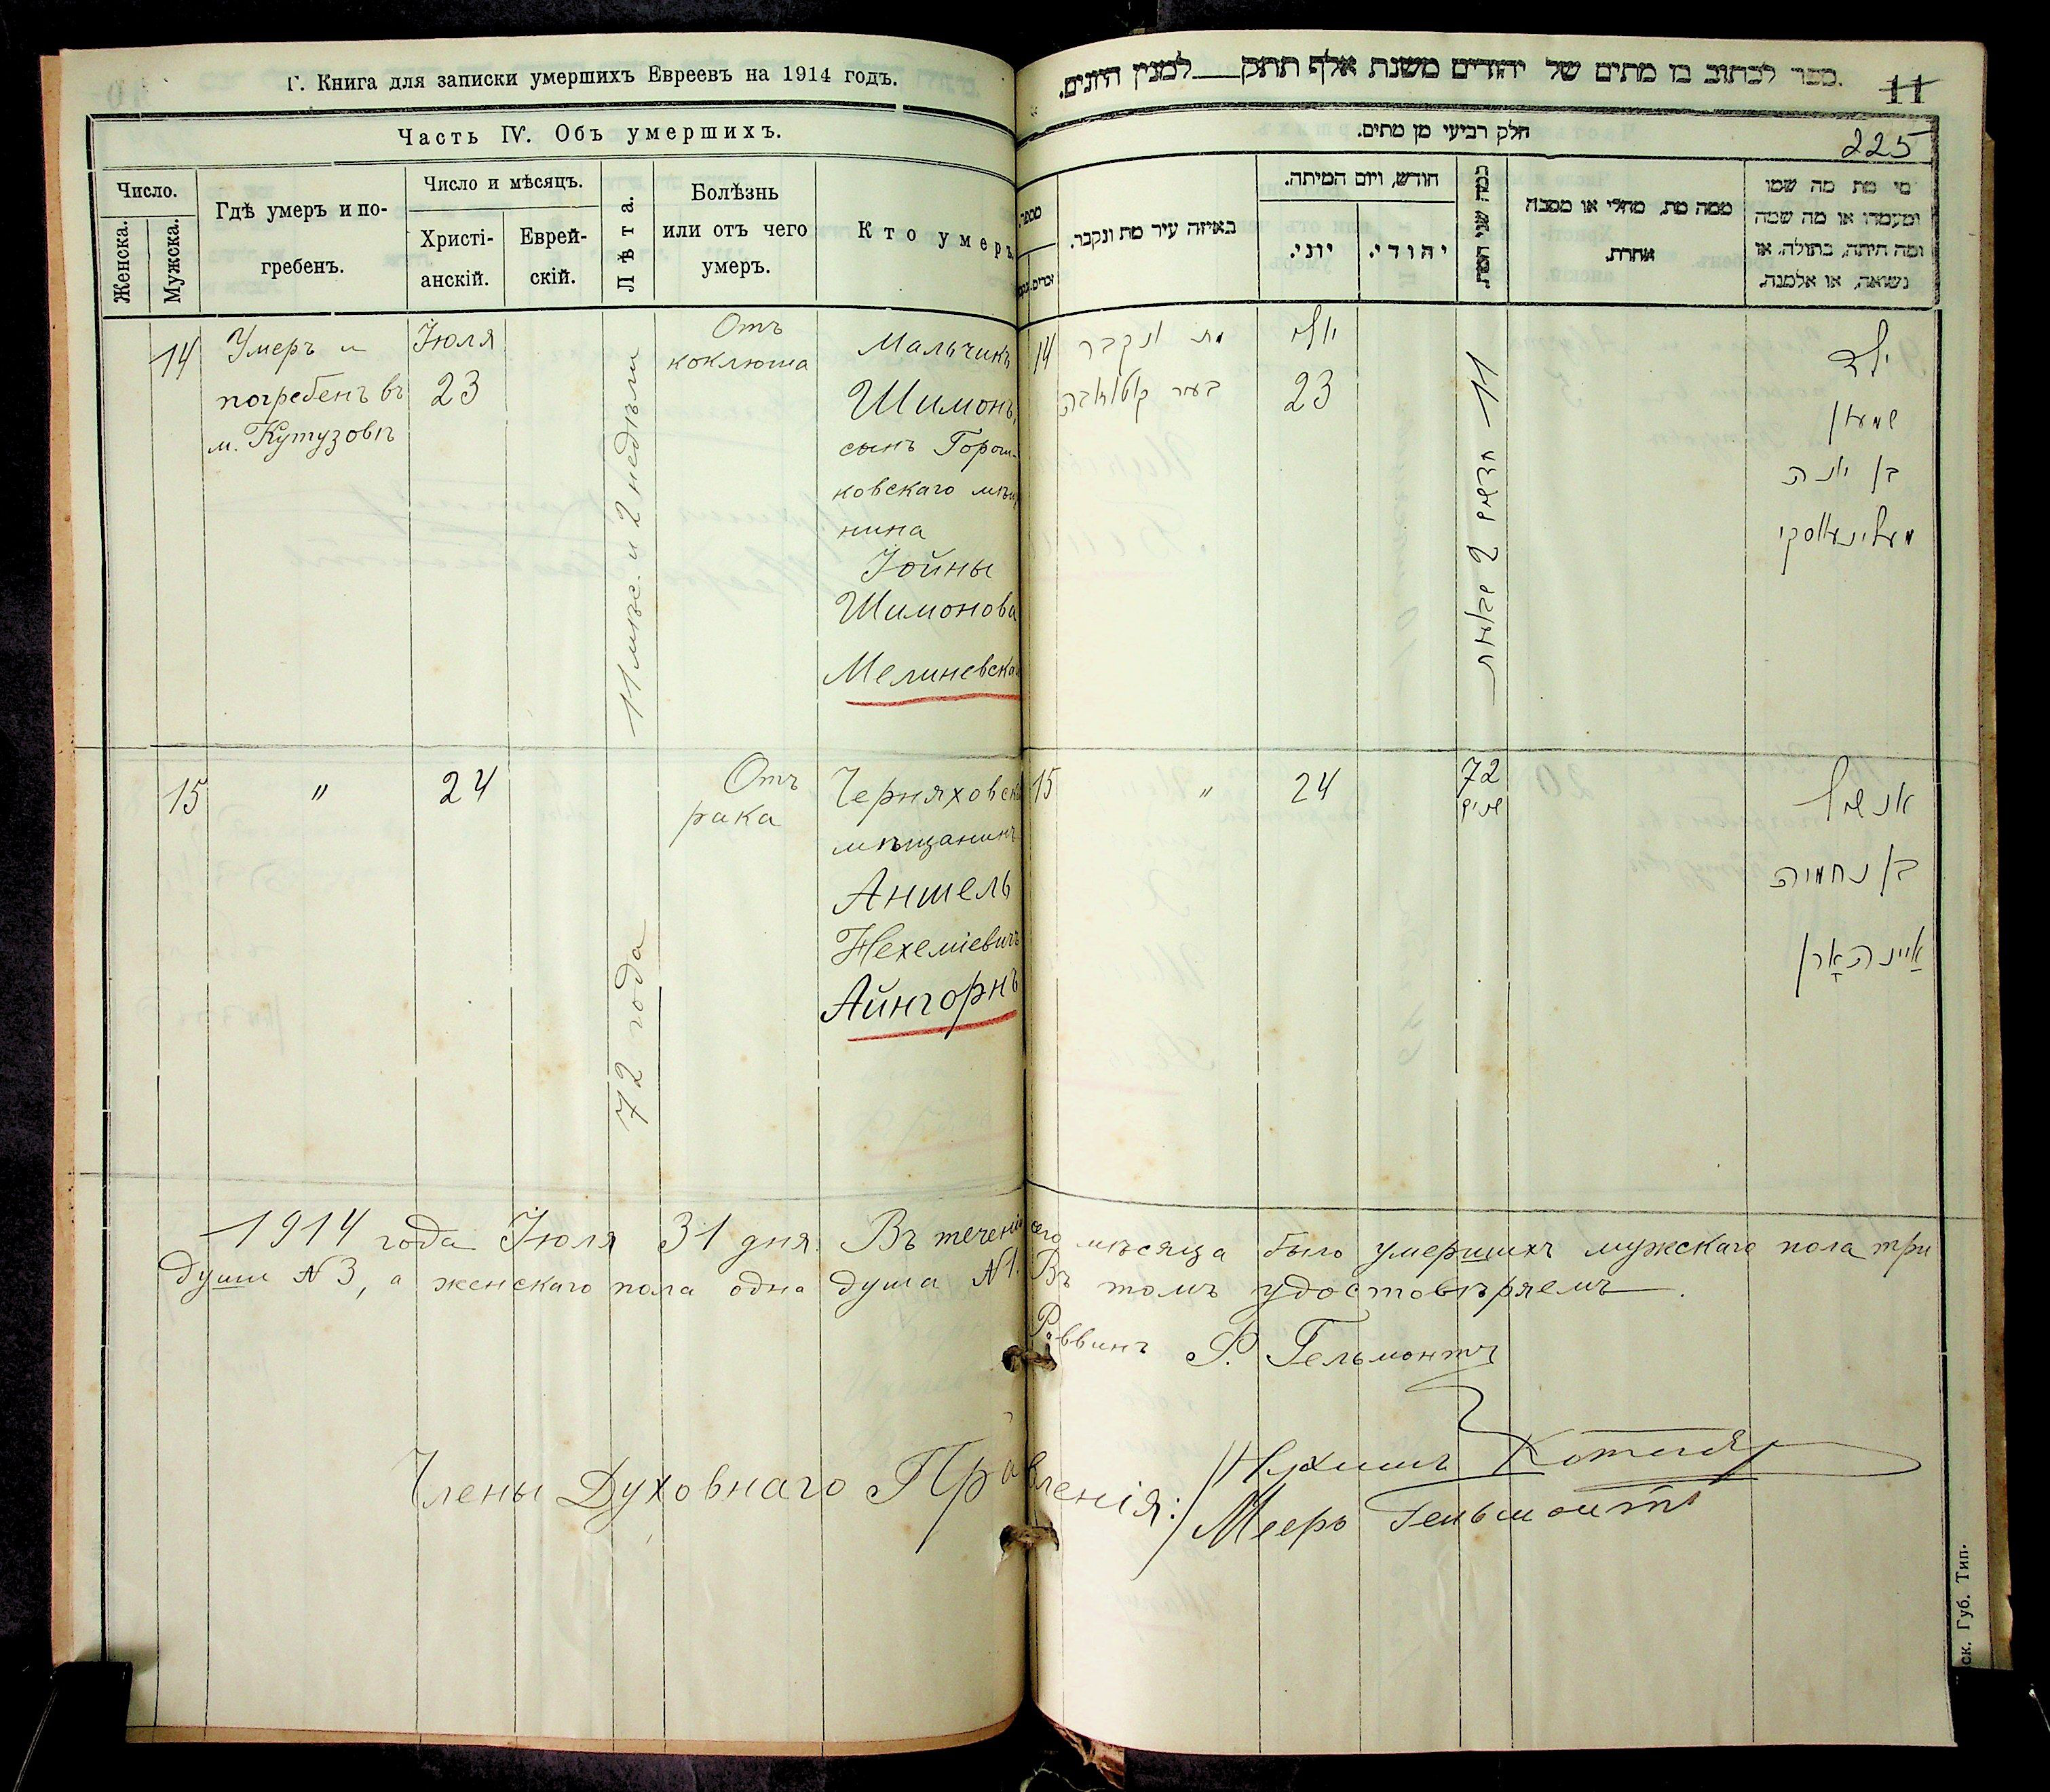 Г. Книга для записки умершихъ Евреевъ на 1914 годъ.
Часть IV. Объ умершихъ.
Число.
Женска.
Мужска.
Гдѣ умеръ и по-
гребенъ.
Число и мѣсяцъ.
Христі-
анскій.
Еврей-
скій.
Лѣта.
Болѣзнь
или отъ чего
умеръ.
Кто умеръ
14
Умеръ и
погребенъ въ
м. Кутузовѣ
Іюля
23
11 мѣс. и 2 недѣли
Отъ
коклюша
Мальчикъ
Шимонъ,
сынъ Горош-
ковскаго мѣщ
нина
Іойны
Шимонова
Мелиневска
15
"
24
72 года
Отъ
рака
Черняховск
мѣщанинъ
Аншель
Нехеміевичъ
Айнгорнъ
ספר לכתוב בו מתים של יהודים משנת אלף תתק למנין היונים.
11
225
חלק רביעי מן מתים.
מספר.
באיזה עיר מת ונקבר.
חודש, ויום המיתה.
יוני.
יהודי.
כמה שני המת.
ממה מת, מחלי או מסבה
אחרת.
מי מת מה שמו
ומעמדו או מה שמה
ומה היתה, בתולה, או
נשואה, או אלמנה.
14
מת ונקבר
בעיר
יולי
23
11 חדשים 2 שבועות
ילד
שמעון
בן יונה
מעלינעווסקי
15
"
24
72
שנים
אנשיל
בן נחמיה
אַיינהאָרן
1914 года Іюля 31 дня. Въ теченіи сего мѣсяца было умершихъ мужскаго пола три
души №3, а женскаго пола одна душа №1. Въ томъ удостовѣряемъ.
Раввинъ Р. Гельмонтъ
Члены Духовнаго Правленія:
Нухимъ Котляр
Мееръ Гельмонтъ
ск. Губ. Тип.